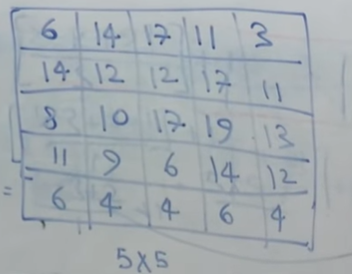 6 14 17 11 3
14 12 12 17 11
8 10 17 19 13
11 9 6 14 12
= 6 4 4 6 4
5x5